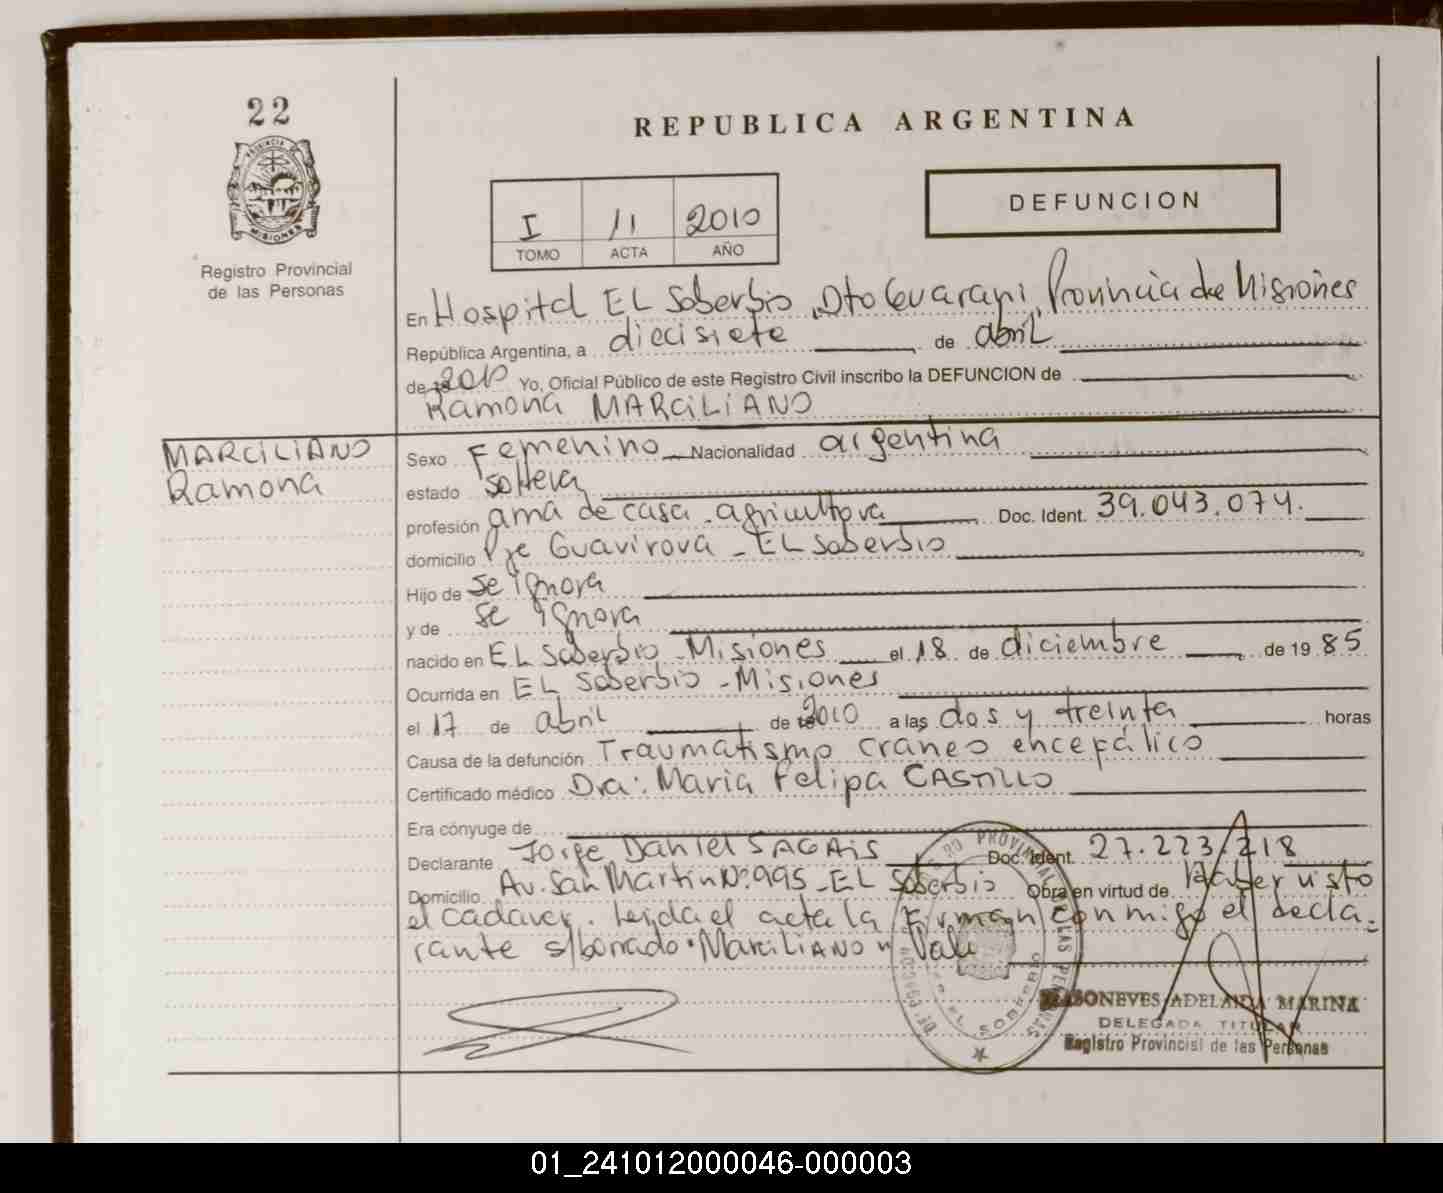 22
REPUBLICA ARGENTINA
PROVINCIA
MISIONES
Registro Provincial
de las Personas
DEFUNCION
I 11 2010
TOMO ACTA AÑO
En Hospital EL Soberbio, Dto Guarani, Provincia de Misiones
República Argentina, a diecisiete de abril
de 2010 Yo, Oficial Público de este Registro Civil inscribo la DEFUNCION de
Ramona MARCILIANO
MARCILIANO
Ramona
Sexo Femenino Nacionalidad argentina
estado soltera
profesión ama de casa - agricultora Doc. Ident. 39.043.074.
domicilio Pje Guavirova - EL Soberbio
Hijo de se ignora
y de se ignora
nacido en EL Soberbio - Misiones el 18 de diciembre de 19 85
Ocurrida en EL Soberbio - Misiones
el 17 de abril de 2010 a las dos y treinta horas
Causa de la defunción Traumatismo craneo encepálico
Certificado médico Dra: Maria Felipa CASTILLO
Era cónyuge de
Declarante Jorge Daniel SAGAIS Doc. Ident. 27.223.218
Domicilio Av. San Martin Nº 995 - EL Soberbio Obra en virtud de Haber visto
el cadaver. Leida el acta la firman conmigo el decla-
rante s/borrado "MARCILIANO" Vale
ADELAIDA MARINA
DELEGADA TITULAR
Registro Provincial de las Personas
01_241012000046-000003